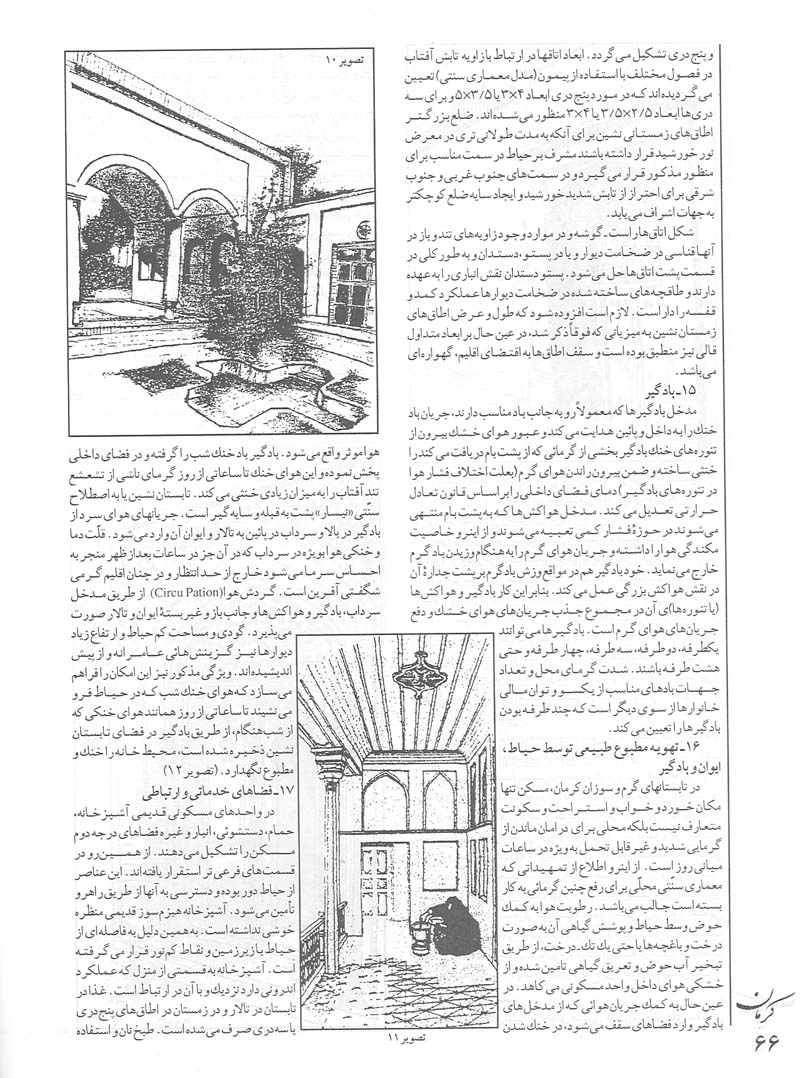 و پنج دری تشکیل می گردد. ابعاد اتاقها در ارتباط با زاویه تابش آفتاب
در فصول مختلف با استفاده از پیمون (مدل معماری سنتی) تعیین
می گردیده‌اند که در مورد پنج دری ابعاد ۴×۳ یا ۳/۵×۵ و برای سه
دری‌ها ابعاد ۲/۵×۳/۵ یا ۴×۳ منظور می‌شده‌اند. ضلع بزرگتر
اطاق‌های زمستانی نشین برای آنکه به مدت طولانی تری در معرض
نور خورشید قرار داشته باشند مشرف بر حیاط در سمت مناسب برای
منظور مذکور قرار می گیرد و در سمت‌های جنوب غربی و جنوب
شرقی برای احتراز از تابش شدید خورشید و ایجاد سایه ضلع کوچکتر
به جهات اشراف می‌یابد.
شکل اتاق‌ها راست‌ـ گوشه و در موارد وجود زاویه‌های تند و باز در
آنها قناسی در ضخامت دیوار و یا در پستو، دستدان و به طور کلی در
قسمت پشت اتاق‌ها حل می‌شود. پستو دستدان نقش انباری را به عهده
دارند و طاقچه‌های ساخته شده در ضخامت دیوارها عملکرد کمد و
قفسه را دار است. لازم است افزوده شود که طول و عرض اطاق‌های
زمستان نشین به میزبانی که فوقاً ذکر شد، در عین حال بر ابعاد متداول
قالی نیز منطبق بوده است و سقف اطاق‌ها به اقتضای اقلیم، گهواره‌ای
می‌باشد.
۱۵ـ بادگیر
مدخل بادگیرها که معمولاً رو به جانب باد مناسب دارند، جریان باد
خنک را به داخل و پائین هدایت می کند و عبور هوای خشک بیرون از
تنوره‌های خنک بادگیر بخشی از گرمائی که از پشت بام دریافت می کند را
خنثی ساخته و ضمن بیرون راندن هوای گرم (بعلت اختلاف فشار هوا
در تنوره‌های بادگیر) دمای فضای داخلی را بر اساس قانون تعادل
حرارتی تعدیل می کند. مدخل هواکش‌ها که به پشت بام منتهی
می‌شوند در حوزهٔ فشار کمی تعبیه می‌شوند و از اینرو خاصیت
مکندگی هوا را داشته و جریان هوای گرم را به هنگام وزیدن باد گرم
خارج می‌نماید. خود بادگیر هم در مواقع وزش بادگرم بر پشت جدارهٔ آن
در نقش هواکش بزرگی عمل می کند. بنابراین کار بادگیر و هواکش‌ها
(یا تنوره‌ها)ی آن در مجموع جذب جریان‌های هوای خشک و دفع
جریان‌های هوای گرم است. بادگیرها می توانند
یکطرفه، دو طرفه، سه طرفه، چهار طرفه و حتی
هشت طرفه باشند. شدت گرمای محل و تعداد
جهات بادهای مناسب از یکسو و توان مالی
خانوارها از سوی دیگر است که چند طرفه بودن
بادگیرها را تعیین می کند.
۱۶ـ تهویه مطبوع طبیعی توسط حیاط،
ایوان و بادگیر
در تابستانهای گرم و سوزان کرمان، مسکن تنها
مکان خورد و خواب و استراحت و سکونت
متعارف نیست بلکه محلی برای در امان ماندن از
گرمایی شدید و غیر قابل تحمل به ویژه در ساعات
میانی روز است. از اینرو اطلاع از تمهیداتی که
معماری سنتی محلّی برای رفع چنین گرمائی به کار
بسته است جالب می‌باشد. رطوبت هوا به کمک
حوض وسط حیاط و پوشش گیاهی آن به صورت
درخت و باغچه‌ها یا حتی یک تک‌ـ درخت، از طریق
تبخیر آب حوض و تعریق گیاهی تامین شده و از
خشکی هوای داخل واحد مسکونی می کاهد. در
عین حال به کمک جریان هوائی که از مدخل‌های
بادگیر وارد فضاهای سقف می‌شود، در خنک شدن
تصویر ۱۰
هوا موثر واقع می‌شود. بادگیر باد خنک شب را گرفته و در فضای داخلی
پخش نموده و این هوای خنک تا ساعاتی از روز گرمای ناشی از تشعشع
تند آفتاب را به میزان زیادی خنثی می کند. تابستان نشین یا به اصطلاح
سنتی «نیسار» پشت به قبله و سایه گیر است. جریانهای هوای سرد از
بادگیر در بالا و سرداب در پائین به تالار و ایوان آن وارد می‌شود. قلّت دما
و خنکی هوا بویژه در سرداب که در آن جز در ساعات بعد از ظهر منجر به
احساس سرما می‌شود خارج از حد انتظار و در چنان اقلیم گرمی
شگفتی آفرین است. گردش هوا (Circu Pation) از طریق مدخل
سرداب، بادگیر و هواکش‌ها و جانب باز و غیر بستهٔ ایوان و تالار صورت
می‌پذیرد. گودی و مساحت کم حیاط و ارتفاع زیاد
دیوارها نیز گزینش‌هائی عامرانه و از پیش
اندیشیده‌اند. ویژگی مذکور نیز این امکان را فراهم
می‌سازد که هوای خنک شب که در حیاط فرو
می نشیند تا ساعاتی از روز همانند هوای خنکی که
از شب هنگام، از طریق بادگیر در فضای تابستان
نشین ذخیره شده است، محیط خانه را خنک و
مطبوع نگهدارد. (تصویر ۱۲)
۱۷ـ فضاهای خدماتی و ارتباطی
در واحدهای مسکونی قدیمی آشپزخانه،
حمام، دستشوئی، انبار و غیره فضاهای درجه دوم
مسکن را تشکیل می‌دهند. از همین‌رو در
قسمت‌های فرعی تر استقرار یافته‌اند. این عناصر
از حیاط دور بوده و دسترسی به آنها از طریق راهرو
تأمین می‌شود. آشپزخانه هیزم سوز قدیمی منظره
خوشی نداشته است. به همین دلیل به فاصله‌ای از
حیاط یا زیرزمین و نقاط کم نور قرار می گرفته
است. آشپزخانه به قسمتی از منزل که عملکرد
اندرونی دارد نزدیک و با آن در ارتباط است. غذا در
تابستان در تالار و در زمستان در اطاق‌های پنج دری
یا سه دری صرف می‌شده است. طبخ نان و استفاده
تصویر ۱۱
کرمان
۶۶